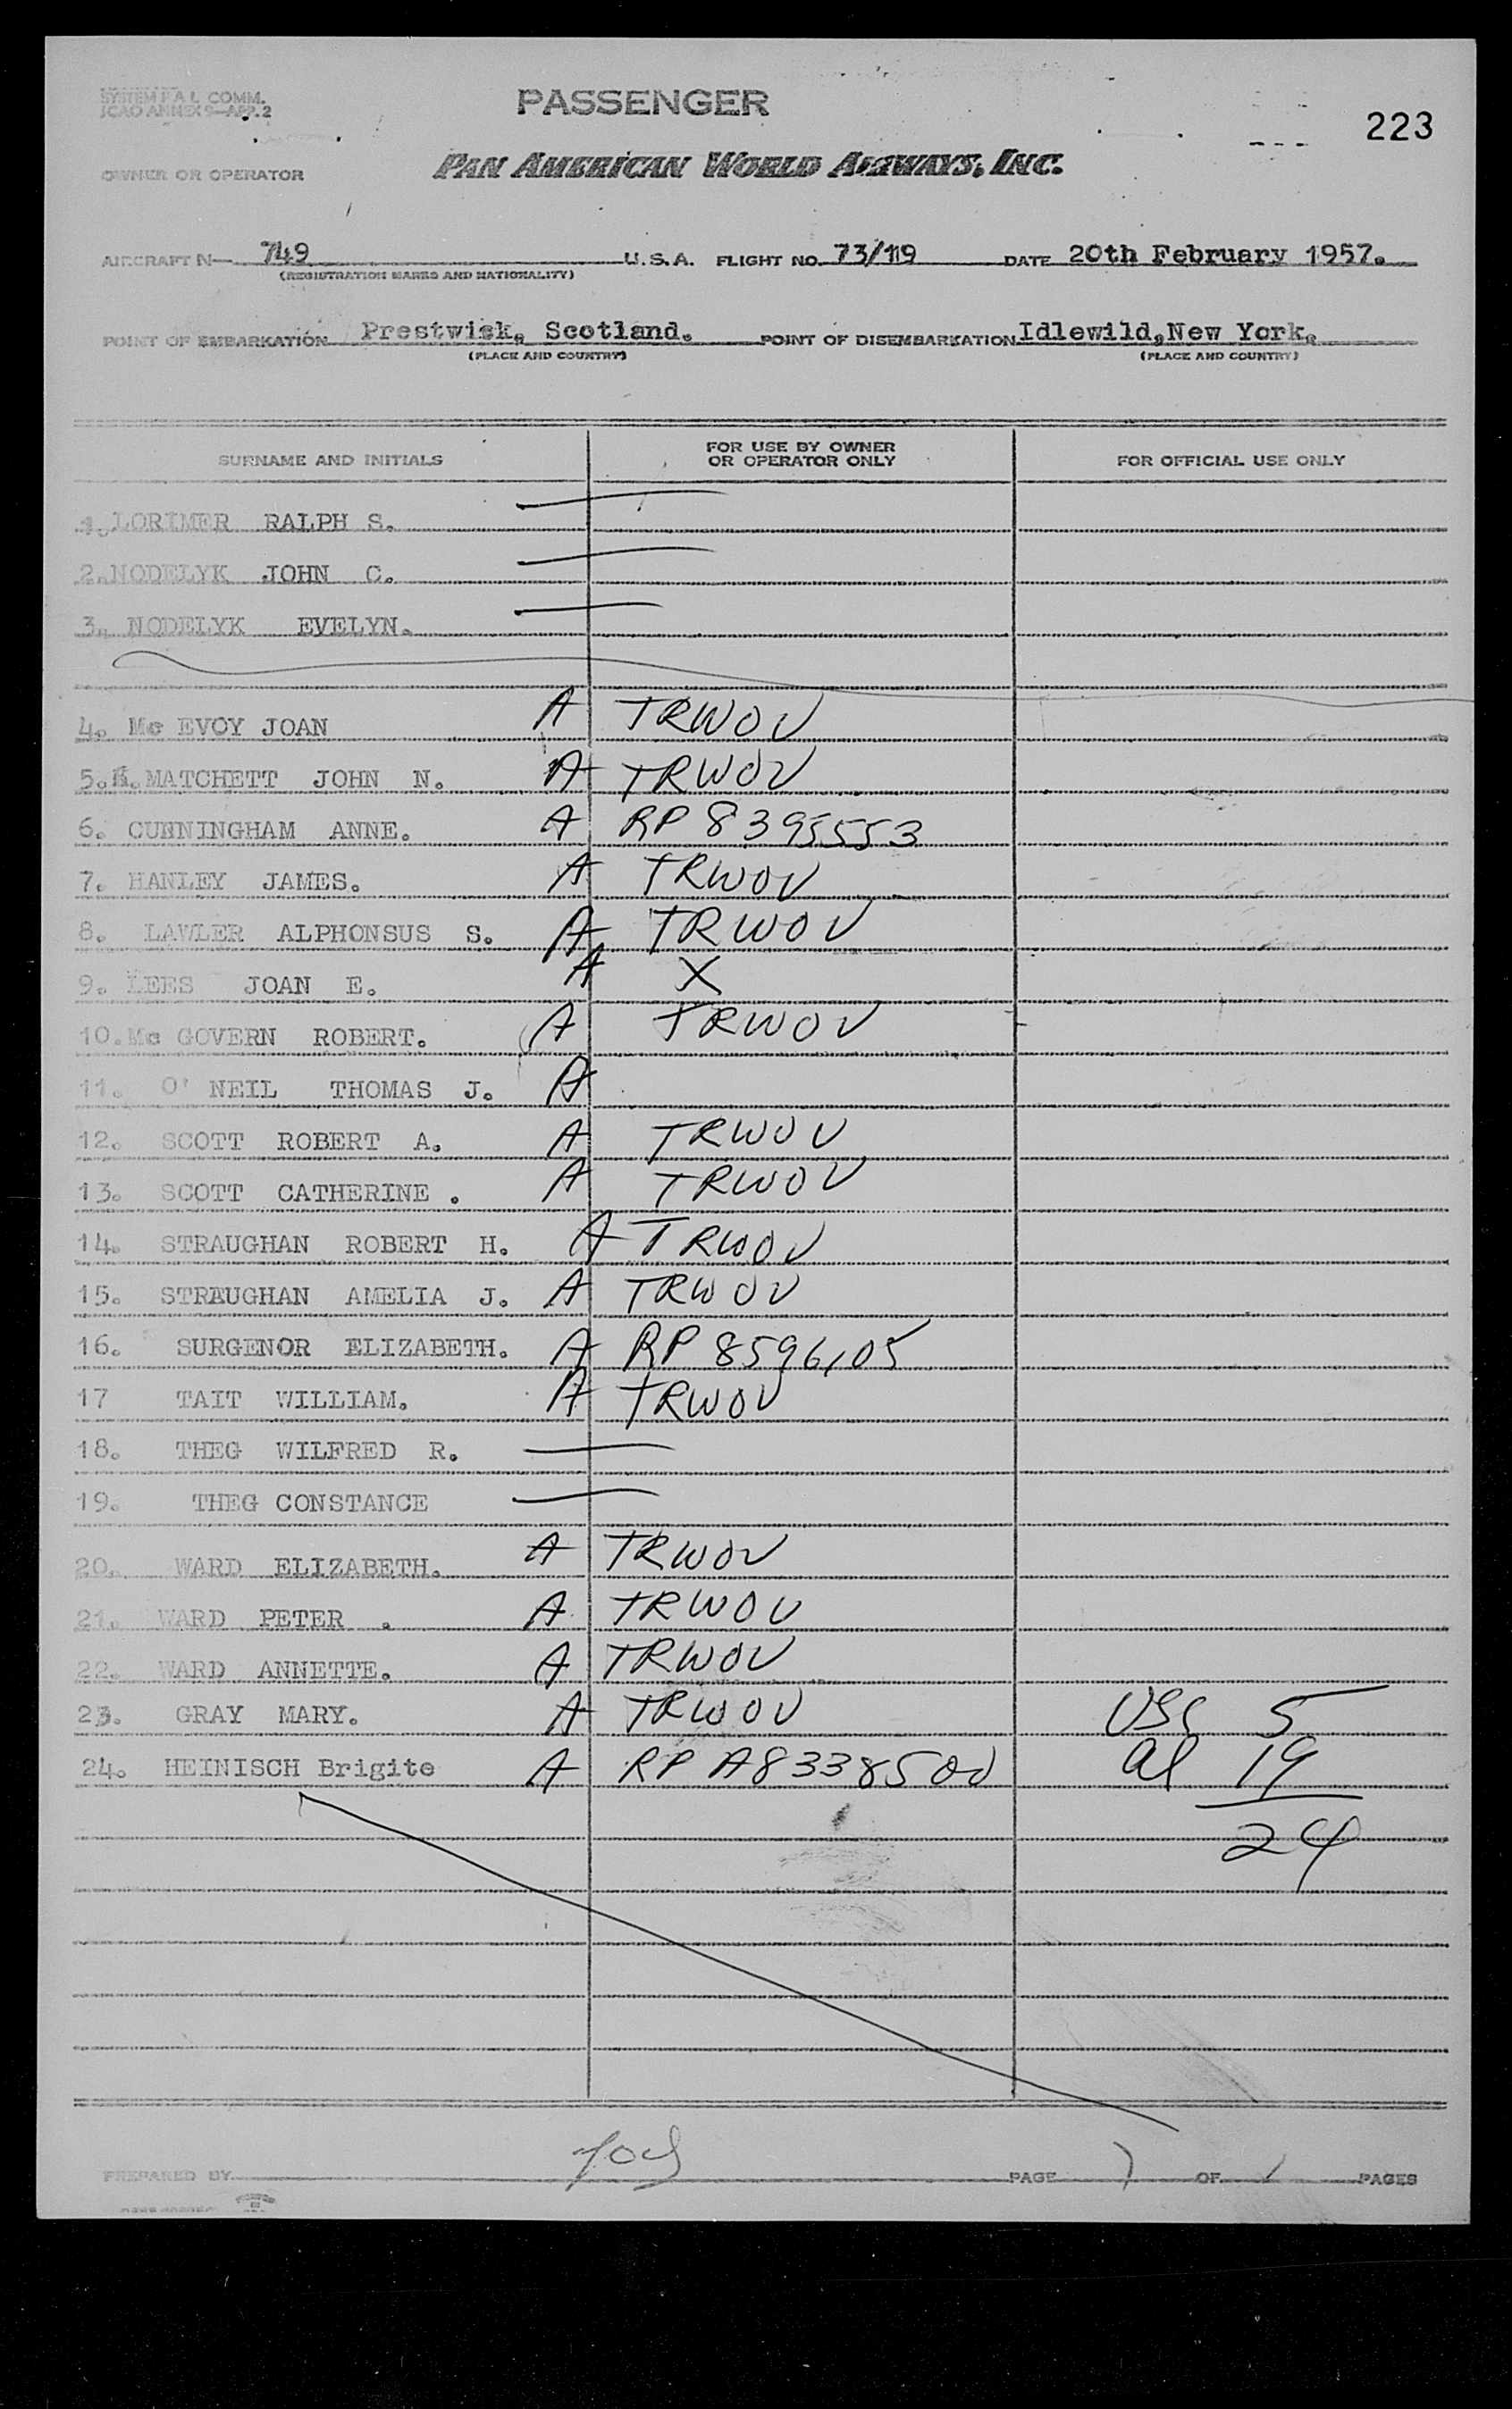 SYSTEM F A L COMM.
ICAO ANNEX 9—APP. 2
PASSENGER
223
OWNER OR OPERATOR
PAN AMERICAN WORLD AIRWAYS, INC.
AIRCRAFT N— 749 U.S.A. FLIGHT NO. 73/119 DATE 20th February 1957.
(REGISTRATION MARKS AND NATIONALITY)
POINT OF EMBARKATION Prestwick, Scotland. POINT OF DISEMBARKATION Idlewild, New York.
(PLACE AND COUNTRY) (PLACE AND COUNTRY)
SURNAME AND INITIALS FOR USE BY OWNER OR OPERATOR ONLY FOR OFFICIAL USE ONLY
1. LORIMER RALPH S. —
2. NODELYK JOHN C. —
3. NODELYK EVELYN. —
4. Mc EVOY JOAN A TRWOV
5. MATCHETT JOHN N. A TRWOV
6. CUNNINGHAM ANNE. A RP 8395553
7. HANLEY JAMES. A TRWOV
8. LAWLER ALPHONSUS S. A TRWOV
9. LEES JOAN E. A X
10. Mc GOVERN ROBERT. A TRWOV
11. O' NEIL THOMAS J. A
12. SCOTT ROBERT A. A TRWOV
13. SCOTT CATHERINE . A TRWOV
14. STRAUGHAN ROBERT H. A TRWOV
15. STRAUGHAN AMELIA J. A TRWOV
16. SURGENOR ELIZABETH. A RP 8596105
17 TAIT WILLIAM. A TRWOV
18. THEG WILFRED R. —
19. THEG CONSTANCE —
20. WARD ELIZABETH. A TRWOV
21. WARD PETER . A TRWOV
22. WARD ANNETTE. A TRWOV
23. GRAY MARY. A TRWOV USC 5
24. HEINISCH Brigite A RP A8338500 al 19
24
PREPARED BY PAGE 1 OF 1 PAGES